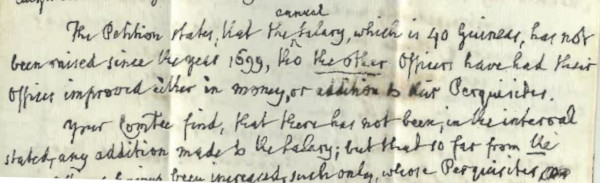 annual
The Petition states, that the Salary, which is 40 Guineas, has not
been raised since the year 1699, tho the other Officers have had their
Offices improved either in money, or addition to their Perquisites.
Your Comtee find, that there has not been, in the interval
stated, any addition made to the Salary; but that so far from the
been increased, such only, whose Perquisites